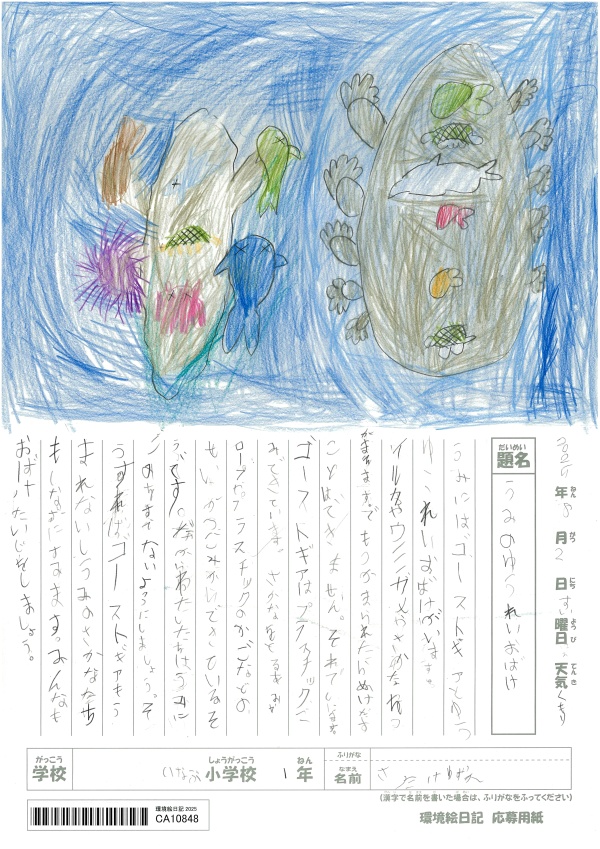 2025年8月2日 土曜日 天気 くもり
ねん がつ にち ようび てんき
だいめい
題名
うみのゆうれいおばけ
うみにはゴーストギアとゆう
ゆうれいおばけがいます
イルカやウミガメやさかなたち
がまきますでもつかまられたらぬけだす
ことはできません。それでしにます
ゴーストギアはプラスチックご
みでできてます。さかなをとるあみ
ロープやプラスチックのかごなどの
せいかつごみがしでできているそ
うです。だからわたしたちはうみに
ごみをすてないようにしましょう。そ
うすればゴーストギアもう
まれないしうみのさかなたち
もしなずにさるますっみんなも
おばけたいじをしましょう。
がっこう
学校
しょうがっこう
小学校
ねん
1年
ふりがな
なまえ
名前
(漢字で名前を書いた場合は、ふりがなをふってください)
環境絵日記 2025
CA10848
環境絵日記 応募用紙